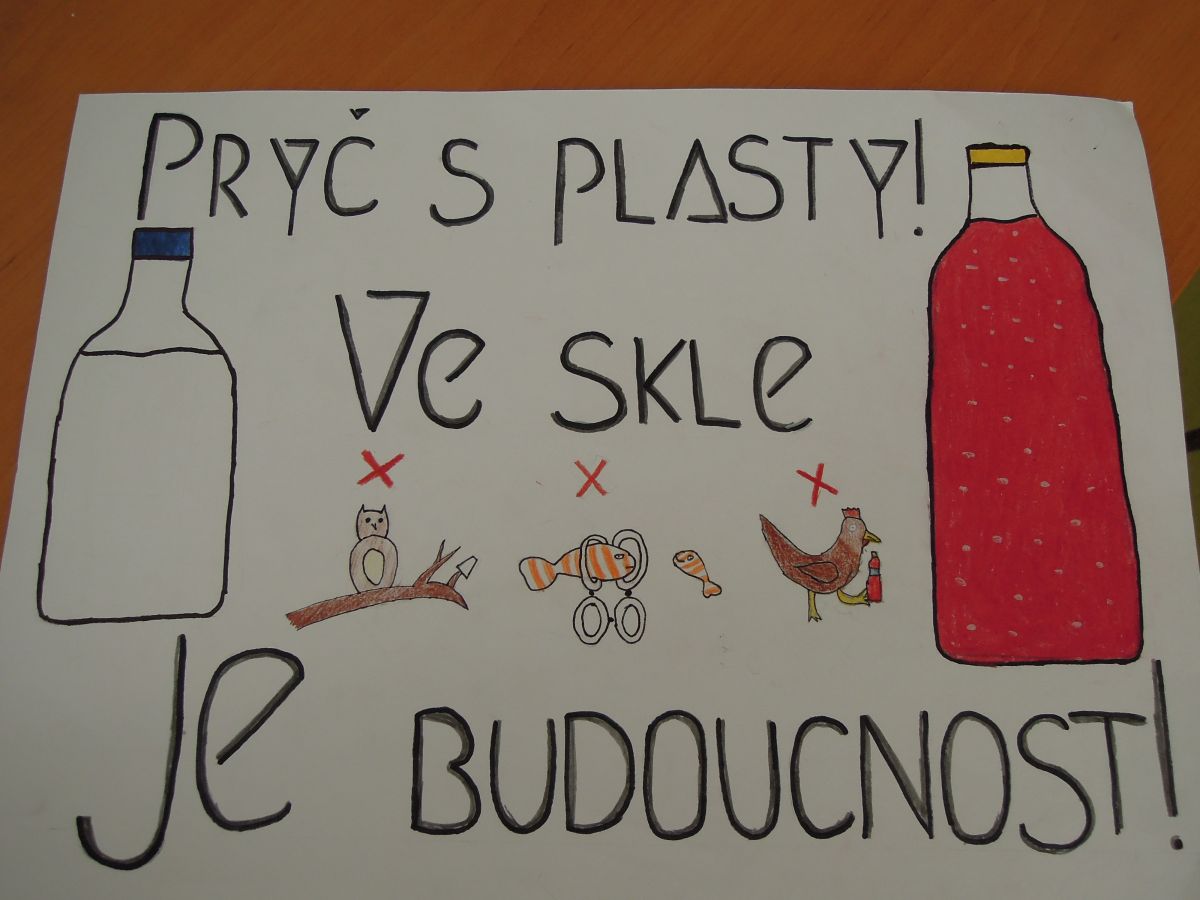 PRYČ S PLASTY!
Ve SKLe
Je BUDOUCNOST!